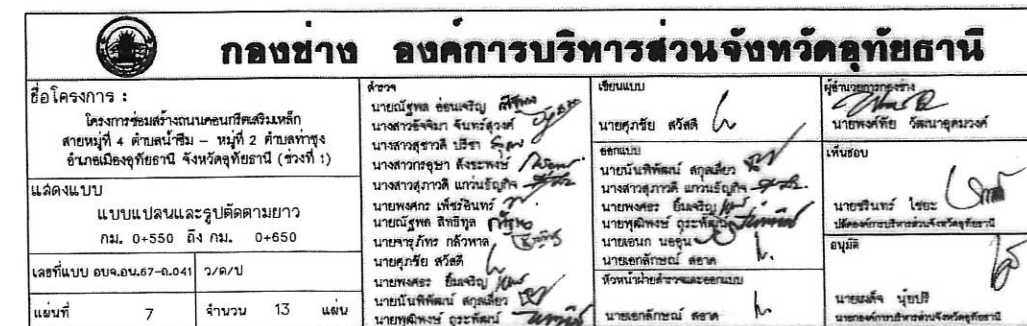 กองช่าง องค์การบริหารส่วนจังหวัดอุทัยธานี
ชื่อโครงการ :
โครงการซ่อมสร้างถนนคอนกรีตเสริมเหล็ก
สายหมู่ที่ 4 ตำบลน้ำซึม - หมู่ที่ 2 ตำบลท่าซุง
อำเภอเมืองอุทัยธานี จังหวัดอุทัยธานี (ช่วงที่ 1)
แสดงแบบ
แบบแปลนและรูปตัดตามยาว
กม. 0+550 ถึง กม. 0+650
เลขที่แบบ อบจ.อน.67-ถ.041 ว/ด/ป
แผ่นที่ 7 จำนวน 13 แผ่น
สำรวจ
นายณัฐพล อ่อนเจริญ
นางสาวอัจจิมา จันทร์สุวงค์
นางสาวสุชาวดี ปรีชา
นางสาวกรอุษา สังชะพงษ์
นางสาวสุภาวดี แกวนธัญกิจ
นายพงศกร เพ็ชรอินทร์
นายณัฐพล สิทธิทูล
นายจารุภัทร กล้วหาล
นายศุภชัย สวัสดี
นายพงศธร ยิ้มเจริญ
นายนันทิพัฒน์ สกุลเลี่ยว
นายพุฒิพงษ์ ถุระพัฒน์
เขียนแบบ
นายศุภชัย สวัสดี
ออกแบบ
นายนันทิพัฒน์ สกุลเลี่ยว
นางสาวสุภาวดี แกวนธัญกิจ
นายพงศธร ยิ้มเจริญ
นายพุฒิพงษ์ ถุระพัฒน์
นายเอนก นอขุน
นายเอกลักษณ์ สอาด
หัวหน้าฝ่ายสำรวจและออกแบบ
นายเอกลักษณ์ สอาด
ผู้อำนวยการกองช่าง
นายพงค์ทัย วัฒนาอุดมวงค์
เห็นชอบ
นายชรินทร์ ไชยะ
ปลัดองค์การบริหารส่วนจังหวัดอุทัยธานี
อนุมัติ
นายเผด็จ นุ้ยปรี
นายกองค์การบริหารส่วนจังหวัดอุทัยธานี